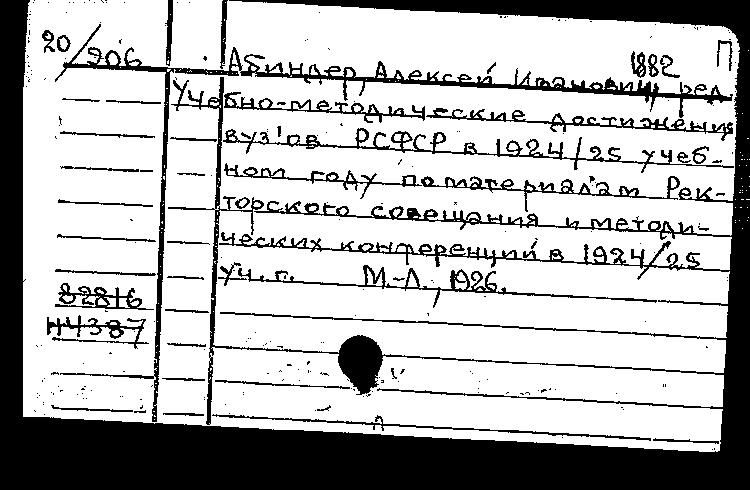 20/906
П
1882
Абиндер, Алексей Иванович, ред.
Учебно-методические достижения
вуз'ов РСФСР в 1924/25 учеб-
ном году по материалам Рек-
торского совещания и методи-
ческих конференций в 1924/25
уч. г. М.-Л., 1926.
82816
44387